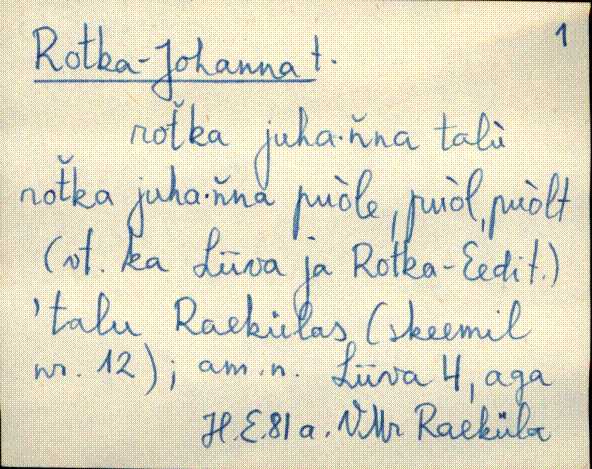 1
Rotka-Johanna t.
roťka juha·ňna talù
roťka juha·ňna pùòle, pùòl, pùòlt
(vt. ka Liiva ja Rotka-Eedi t.)
'talu Raekülas (skeemil
nr. 12); am.n. Liiva 4, aga
H.E.81 a. VMr Raeküla